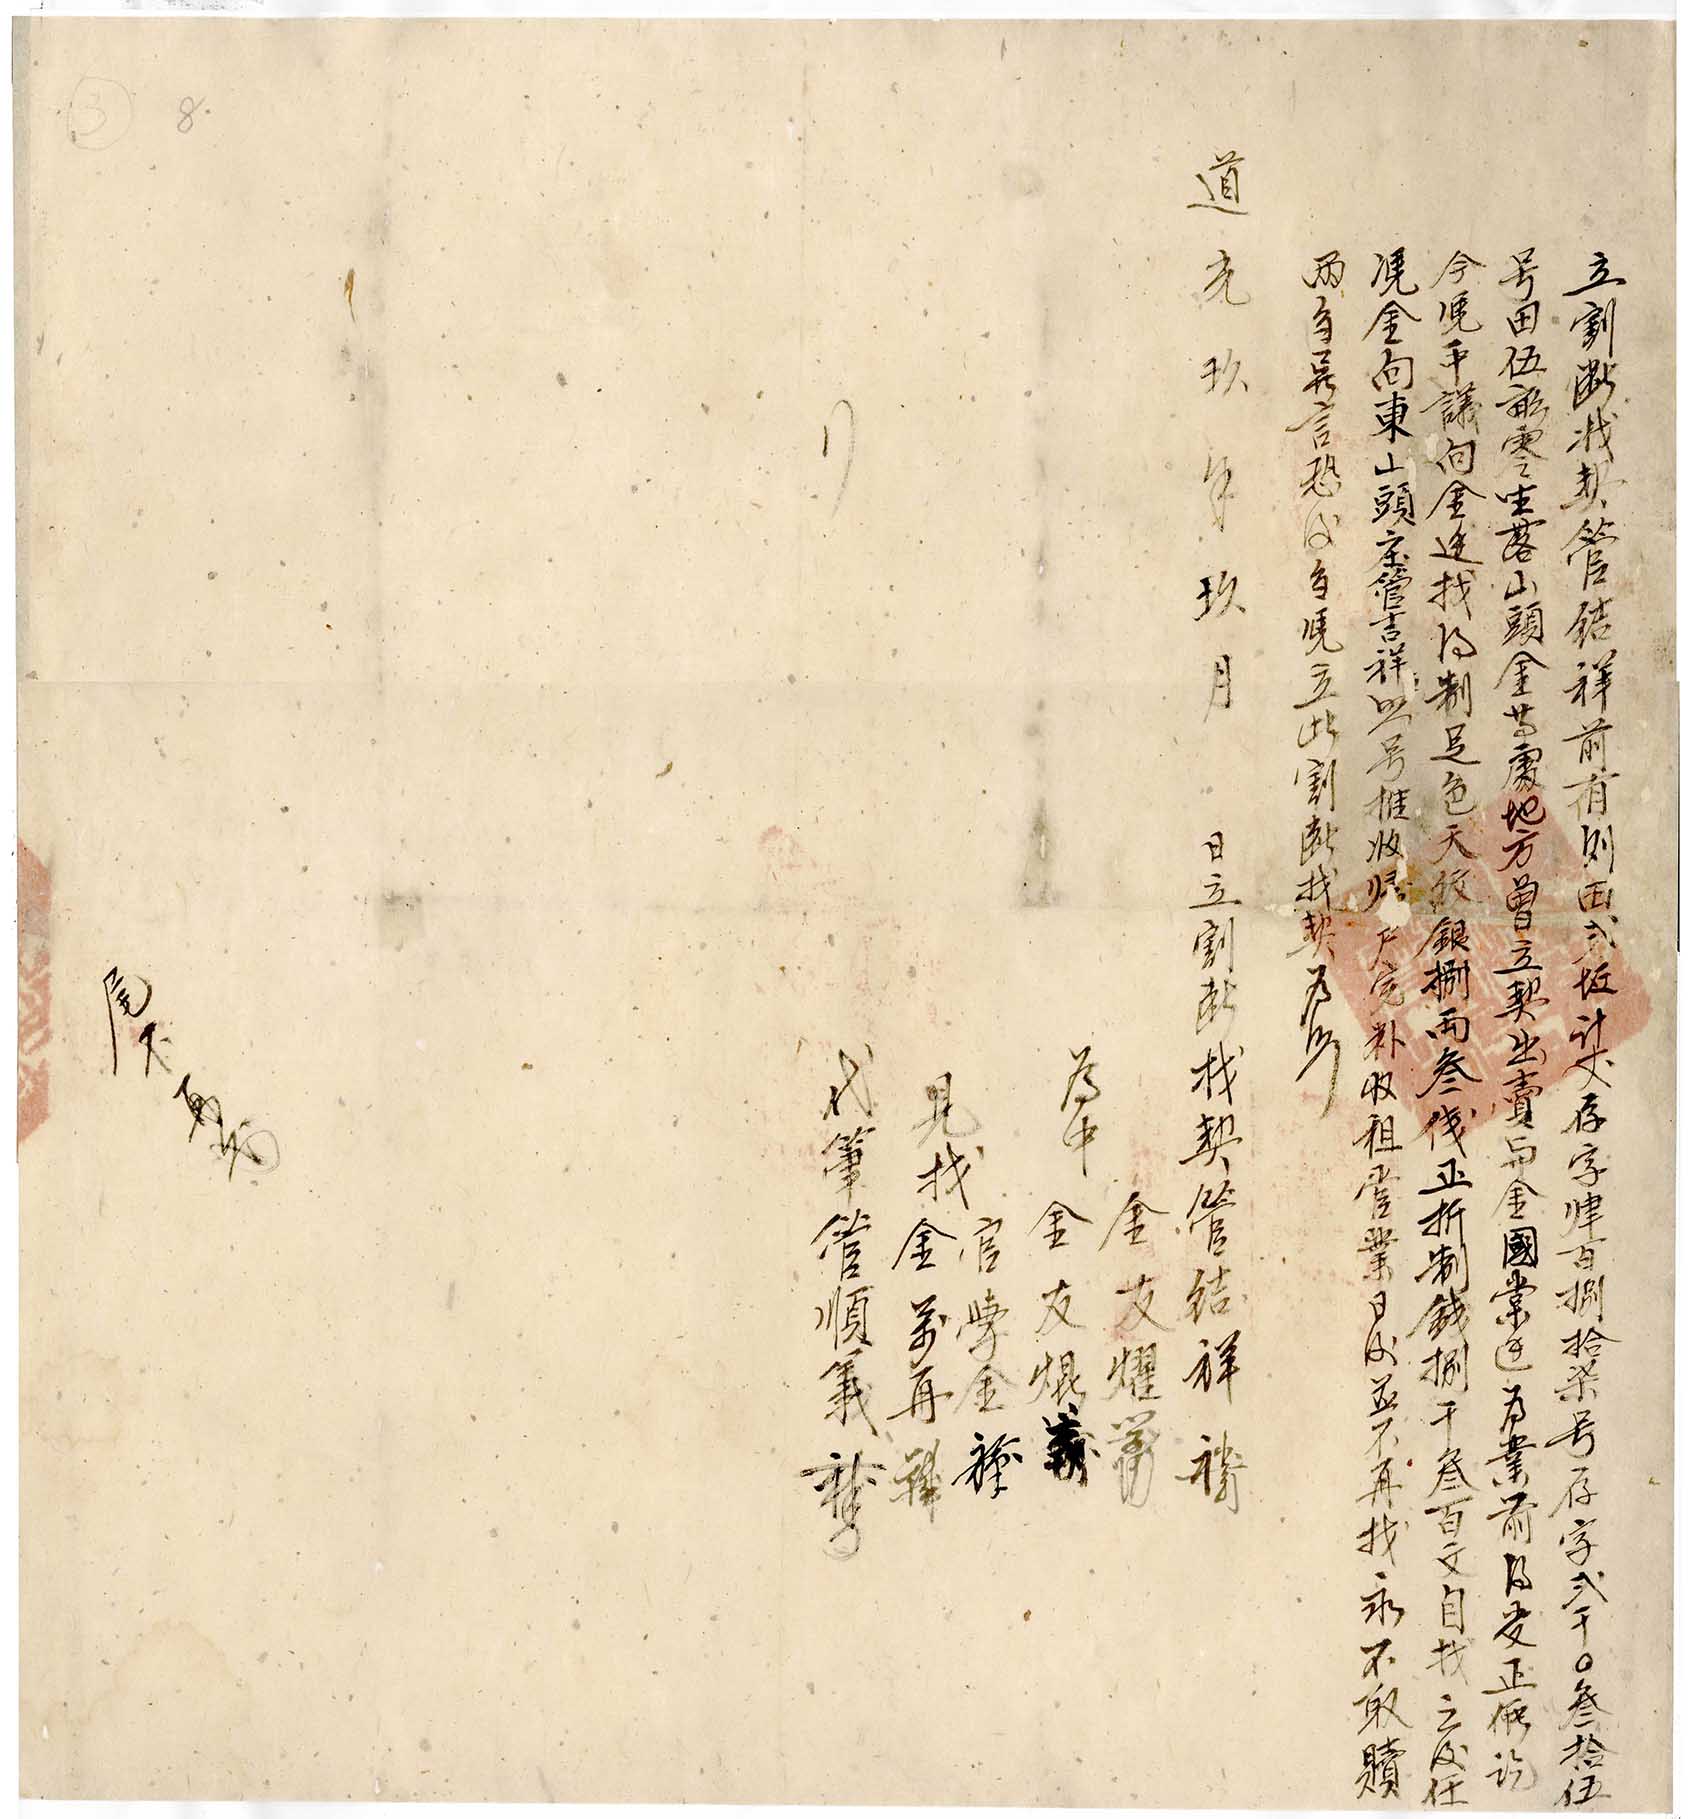 立割断找契管結祥前有則田弍坵計𠀋存字肆百捌拾柒号存字弍千〇叁拾伍
号田伍畝零坐落山頭金等處地方曾立契出賣與金國棠邊為業前得受正價訖
今凴中議向金邊找得制足色天紋銀捌兩叁伐正折制錢捌千叁百文自找之後任
凴金向東山頭庄管吉祥照号推收歸戶完粮收租管業日後並不再找永不取贖
兩自無言恐後自凴立此割断找契為炤
道光玖年玖月 日立割断找契管結祥
金友燿
為中 金友焜
官學金
見找金萬再
代筆管順義
3 8